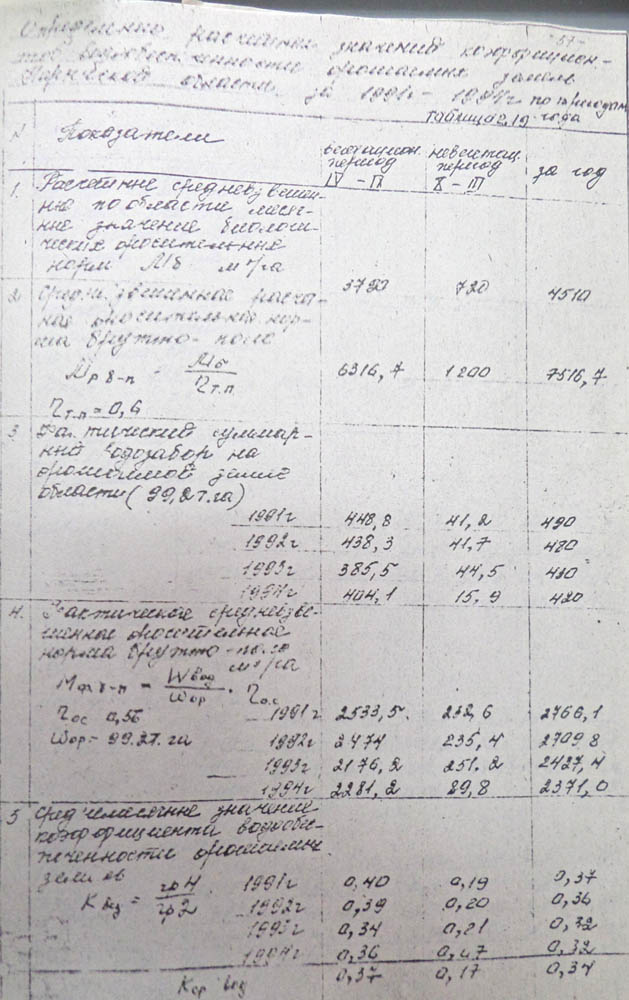 -57-
Определение расчетных значений коэффициен-
тов водообеспеченности орошаемых земель
области за 1991г - 1994г по периодам
таблица 2.19 года
N Показатели вегетацион. период IV - IX невегетац. период X - III за год
1. Расчетные средневзвешен-
ные по области меся-
чные значение биологи-
ческих оросительных
норм Мб м³/га 3790 720 4510
2 Средневзвешенное расче-
тное оросительная нор-
ма брутто-поле
Мр б-п = Мб / ηт.п 6316,7 1200 7516,7
ηт.п = 0,6
3 Фактический суммар-
ный водозабор на
орошаемой земле
области (99,2 т.га)
1991г 448,8 41,2 490
1992г 438,3 41,7 480
1993г 385,5 44,5 430
1994г 404,1 15.9 420
4. Фактическое средневзве-
шенное оросительное
норма брутто-поле
м³/га
Мф б-п = Wвод / ωор · ηо.с
ηос 0,56 1991г 2533,5. 232,6 2766,1
ωор = 99.2т.га 1992г 2474 235,4 2709 8
1993г 2176,2 251.2 2427,4
1994г 2281,2 89,8 2371,0
5 Среднемесячные значение
коэффициента водообес-
печенности орошаемых
земель
К воз = гр4 / гр2 1991г 0,40 0,19 0,37
1992г 0,39 0,20 0,36
1993г 0,34 0,21 0,32
1994г 0,36 0,07 0,32
Кср вод 0,37 0,17 0,34